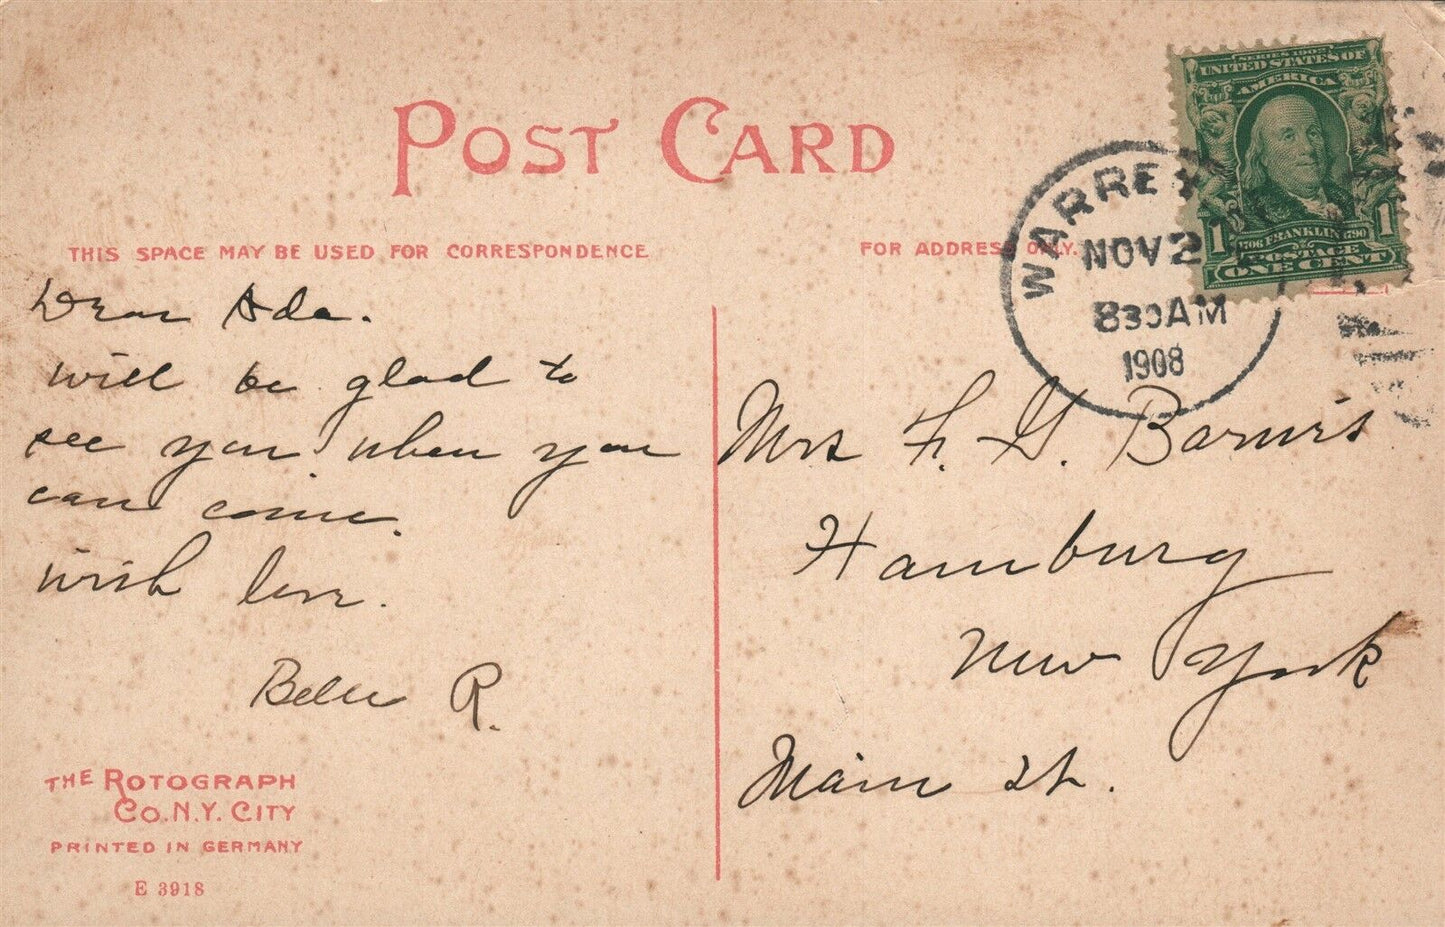 POST CARD
THIS SPACE MAY BE USED FOR CORRESPONDENCE
FOR ADDRESS ONLY.
SERIES 1902
UNITED STATES OF
AMERICA
1706 FRANKLIN 1790
1 1
POSTAGE
ONE CENT
WARRE
NOV 2
830 AM
1908
Dear Ada.
will be glad to
see you when you
can come.
with love.
Belle R.
Mrs F. G. Barnes
Hamburg
New York
Main St.
THE ROTOGRAPH
CO. N.Y. CITY
PRINTED IN GERMANY
E 3918